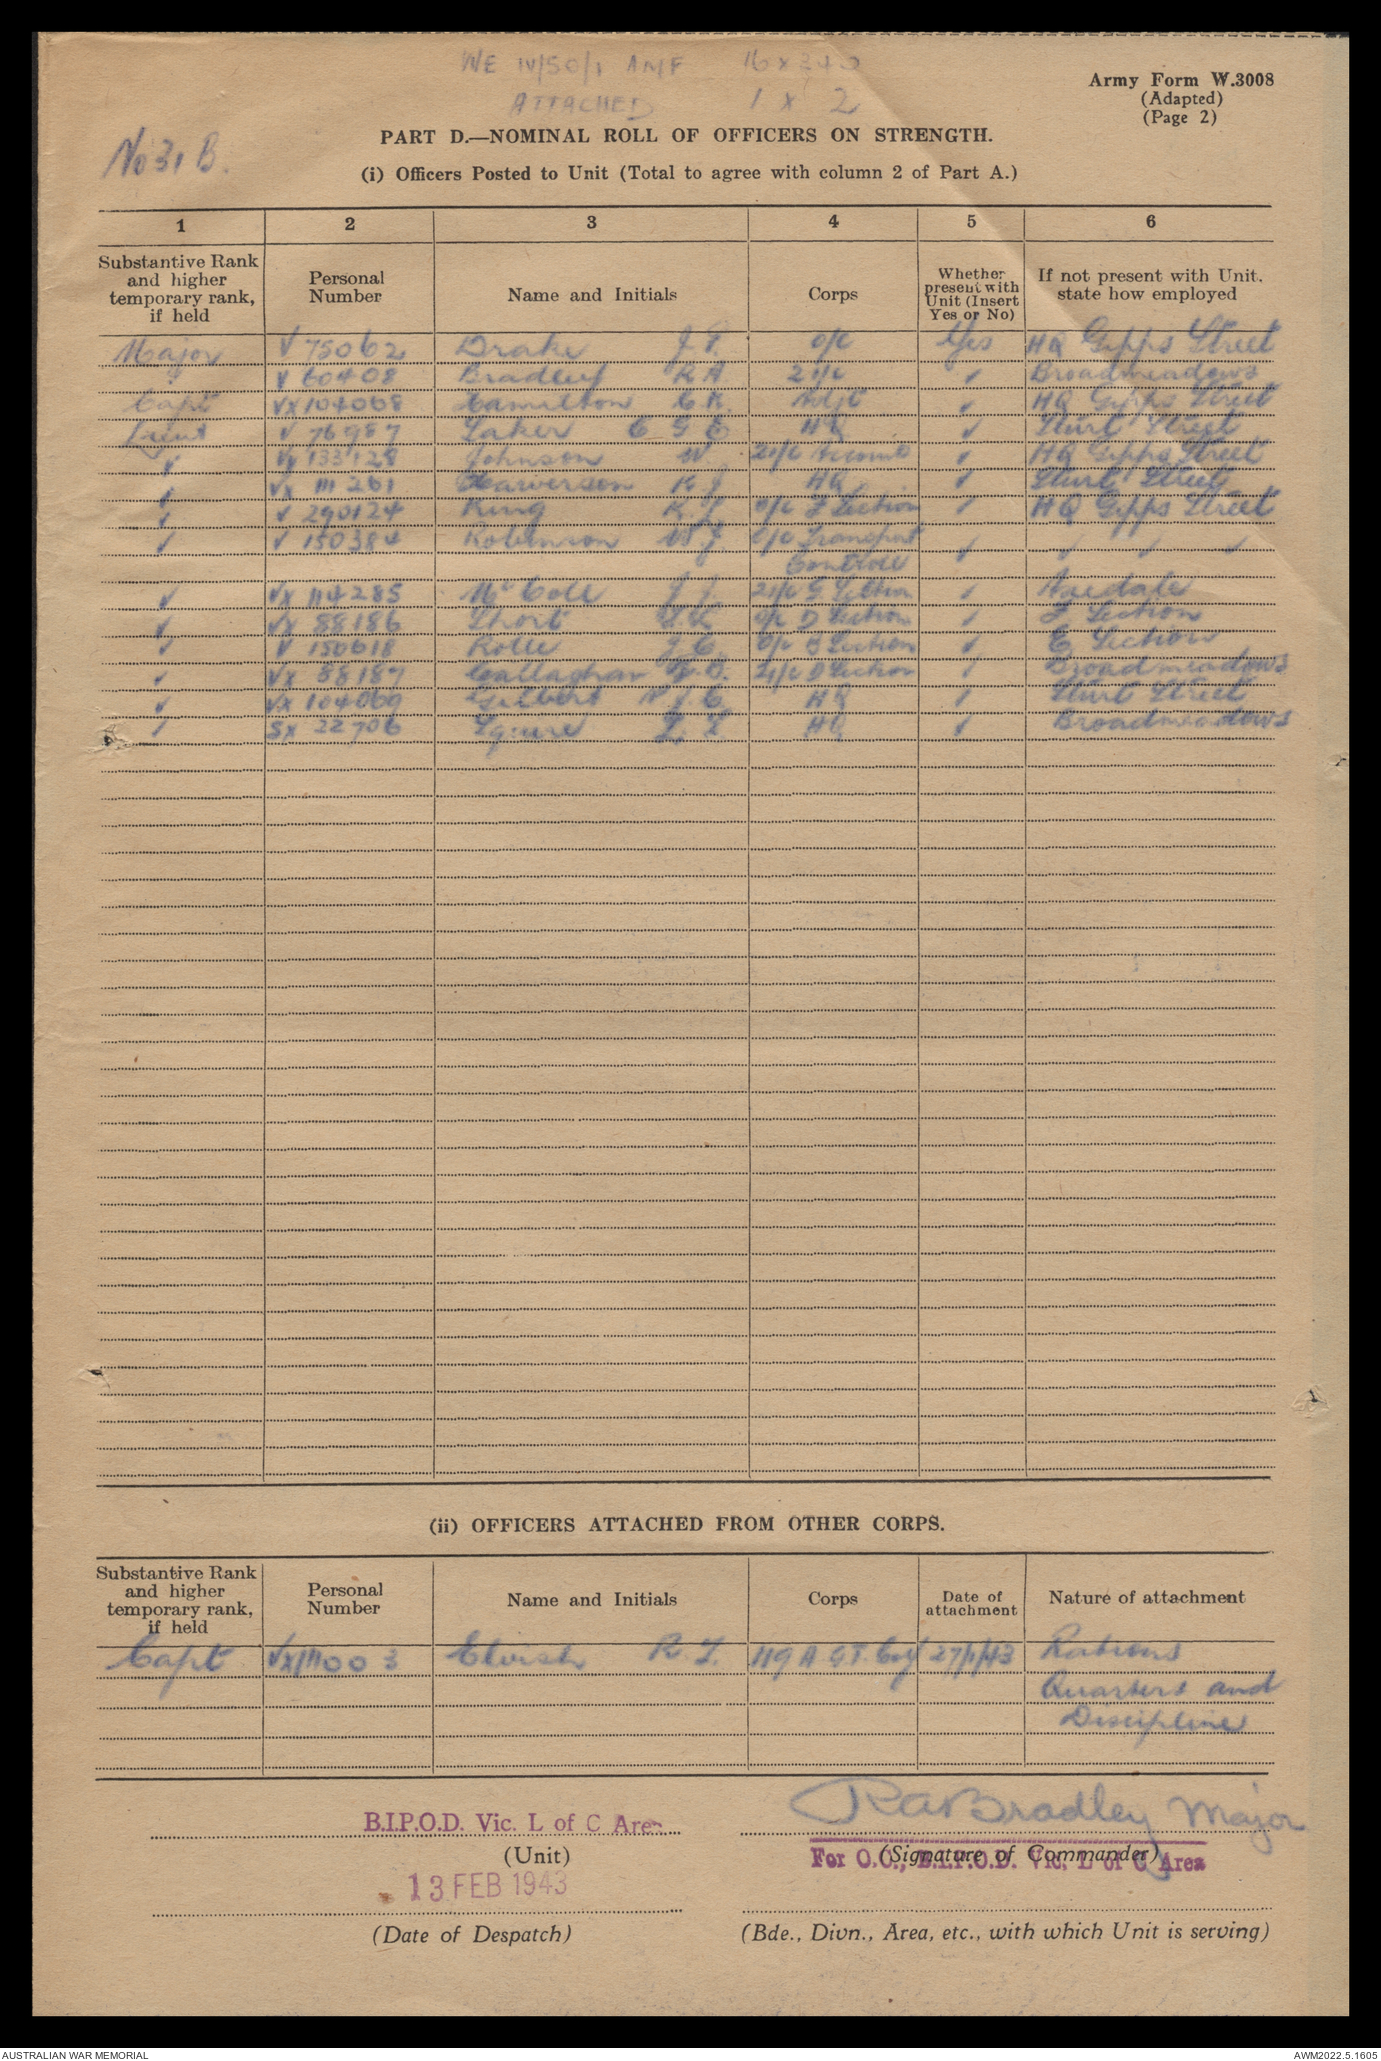 WE IV/50/1 AMF 16 x 240
ATTACHED 1 x 2
Army Form W.3008
(Adapted)
(Page 2)
No 31 B.
PART D.—NOMINAL ROLL OF OFFICERS ON STRENGTH.
(i) Officers Posted to Unit (Total to agree with column 2 of Part A.)
1 2 3 4 5 6
Substantive Rank and higher temporary rank, if held
Personal Number
Name and Initials
Corps
Whether present with Unit (Insert Yes or No)
If not present with Unit. state how employed
Major V 75062 Drake J. o/c Yes HQ Gipps Street
" V 60408 Bradley R A 2 i/c ✓ Broadmeadows
Capt VX 104068 Hamilton C.K. Adjt ✓ HQ Gipps Street
Lieut V 76987 Laker C G E HQ ✓ Sturt Street
✓ VX 133128 Johnson W. 2i/c ✓ HQ Gipps Street
✓ VX 111261 Harverson K J HQ ✓ Sturt Street
✓ V 290124 King K. o/c F Section ✓ HQ Gipps Street
✓ V 150384 Robinson W.J. o/c Transport ✓ ✓ ✓ ✓
Controll
✓ VX 114285 McCole J J. 2i/c G Section ✓
✓ VX 88186 Short o/c D Section ✓ F Section
✓ V 150618 Rolle J C. o/c Section ✓ E Section
✓ VX 88187 Callaghan 2i/c D Section ✓ Broadmeadows
✓ VX 104069 Gilbert N J.C. HQ ✓ Sturt Street
✓ SX 22706 HQ ✓ Broadmeadows
(ii) OFFICERS ATTACHED FROM OTHER CORPS.
Substantive Rank and higher temporary rank, if held
Personal Number
Name and Initials
Corps
Date of attachment
Nature of attachment
Capt VX111003 Elvish R. 119 A G.T. Coy 27/1/43 Rations
Quarters and
Discipline
RABradley Major
B.I.P.O.D. Vic. L of C Area
(Unit)
(Signature of Commander)
For O.C., B.I.P.O.D. Vic. L of C Area
13 FEB 1943
(Date of Despatch)
(Bde., Divn., Area, etc., with which Unit is serving)
AUSTRALIAN WAR MEMORIAL
AWM2022.5.1605